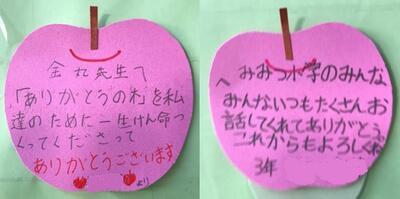 金丸先生へ
「ありがとうの木」を私
達のために一生けん命つ
くってくださって
ありがとうございます
より
へみみづ小学のみんな
みんないつもたくさんお
話してくれてありがとう。
これからもよろしくね
3年